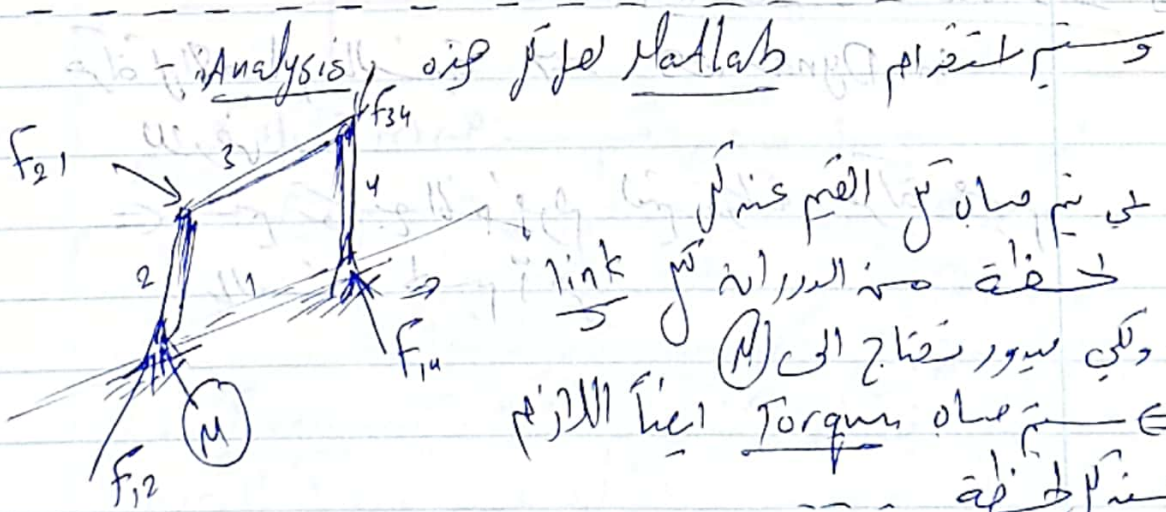 وسيتم استخدام Matlab لعمل كل هذه Analysis :-
F34
F21
3
4
2
1
F14
F12
M
لكي يتم حساب كل القيم عند كل
لحظة من الدوران لكل link
ولكي يدور نحتاج الى M
سيتم حساب Torque ايضاً اللازم
عند كل لحظة ----